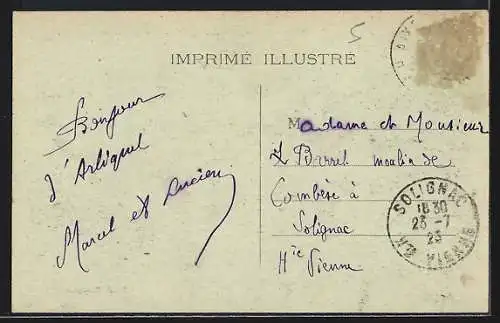 5
IMPRIMÉ ILLUSTRÉ
Bonjour
d'
Marcel et Lucien
Madame et Monsieur
L Barret moulin de
Combèse à
Solignac
Hte Vienne
SOLIGNAC
18 30
23 -7
23
HTE VIENNE